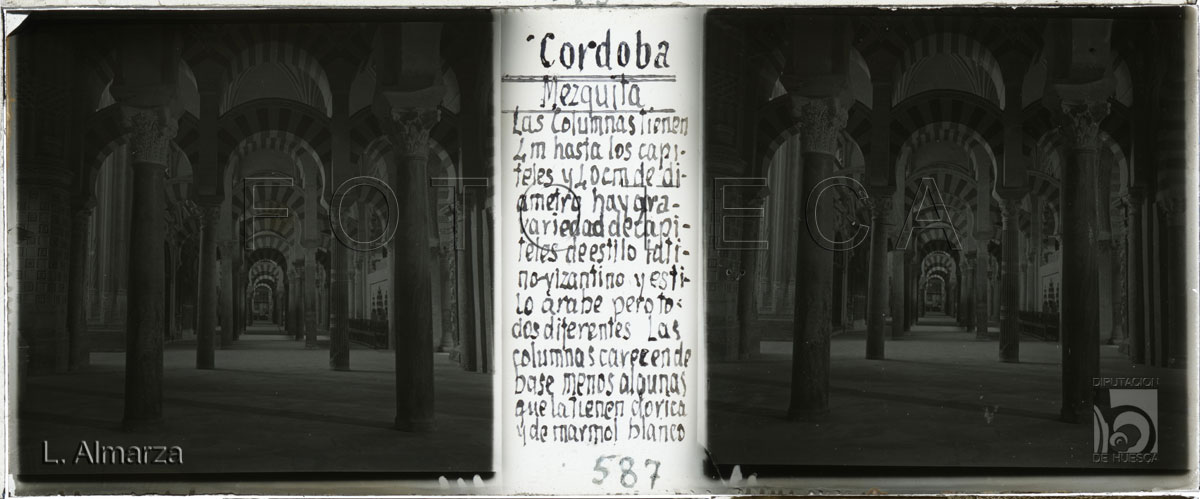 Cordoba
Mezquita
Las Columnas tienen
4 m hasta los capi-
teles y 40 cm de di-
ametro hay gra-
variedad de capi-
teles de estilo lati-
no-yizantino y esti-
lo arabe pero to-
dos diferentes Las
columnas carecen de
base menos algunas
que la tienen dorica
y de marmol blanco
587
FOTOTECA
FOTOTECA
L. Almarza
DIPUTACION
DE HUESCA